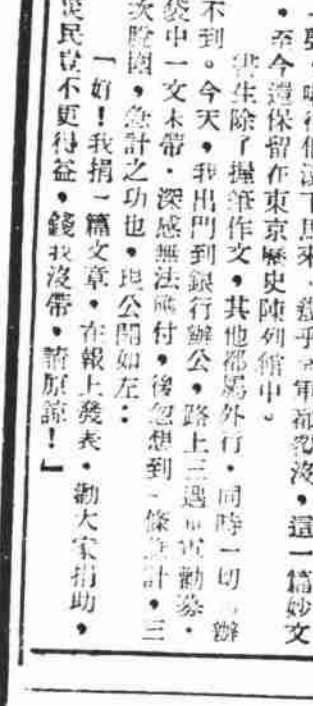 馬來，幾乎　軍都　沒，這一篇妙文
，至今還保留在東京歷史陳列館中。
書生除了握筆作文，其他都屬外行，同時一切　辦
不到。今天，我出門到銀行辦公，路上三遇　　勸募，
袋中一文未帶，深感無法應付，後忽想到一條　計，三
次脫圍，急計之功也，現公開如左：
「好！我捐一篇文章，在報上發表，勸大家捐助，
民豈不更得益，錢我沒帶，請原諒！」